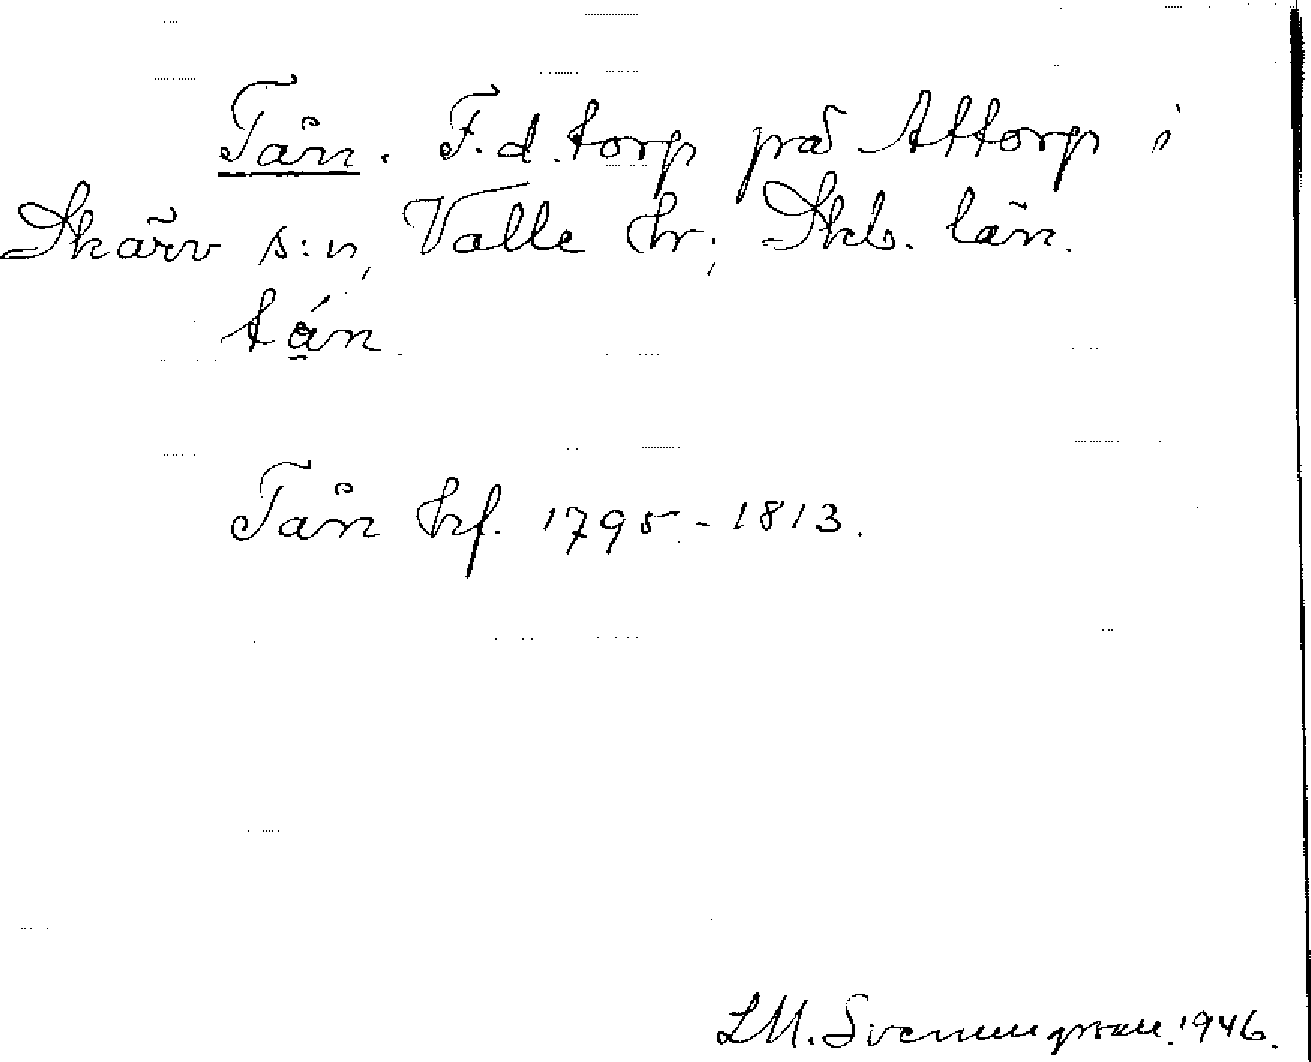 Tån. F.d. torp på Attorp i
Skärv s:n, Valle hr; Skb. län.
tá̱n
Tån hf. 1795-1813.
LM. Svenungsson. 1946.